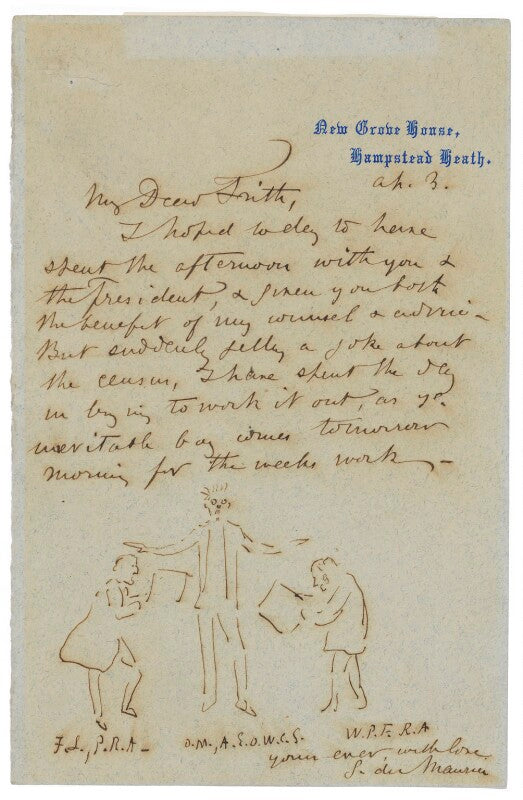 New Grove House,
Hampstead Heath.
Ap. 3.
My Dear Frith,
I hoped to day to have
spent the afternoon with you &
the President, & given you both
the benefit of my counsel & advice –
But suddenly getting a joke about
the census, I have spent the day
in trying to work it out, as yr.
inevitable boy comes tomorrow
morning for the weeks work –
F L., P.R.A –
D.M., A.E.O.W.C.S.
W.P.F. R.A
yours ever, with love
G. du Maurier